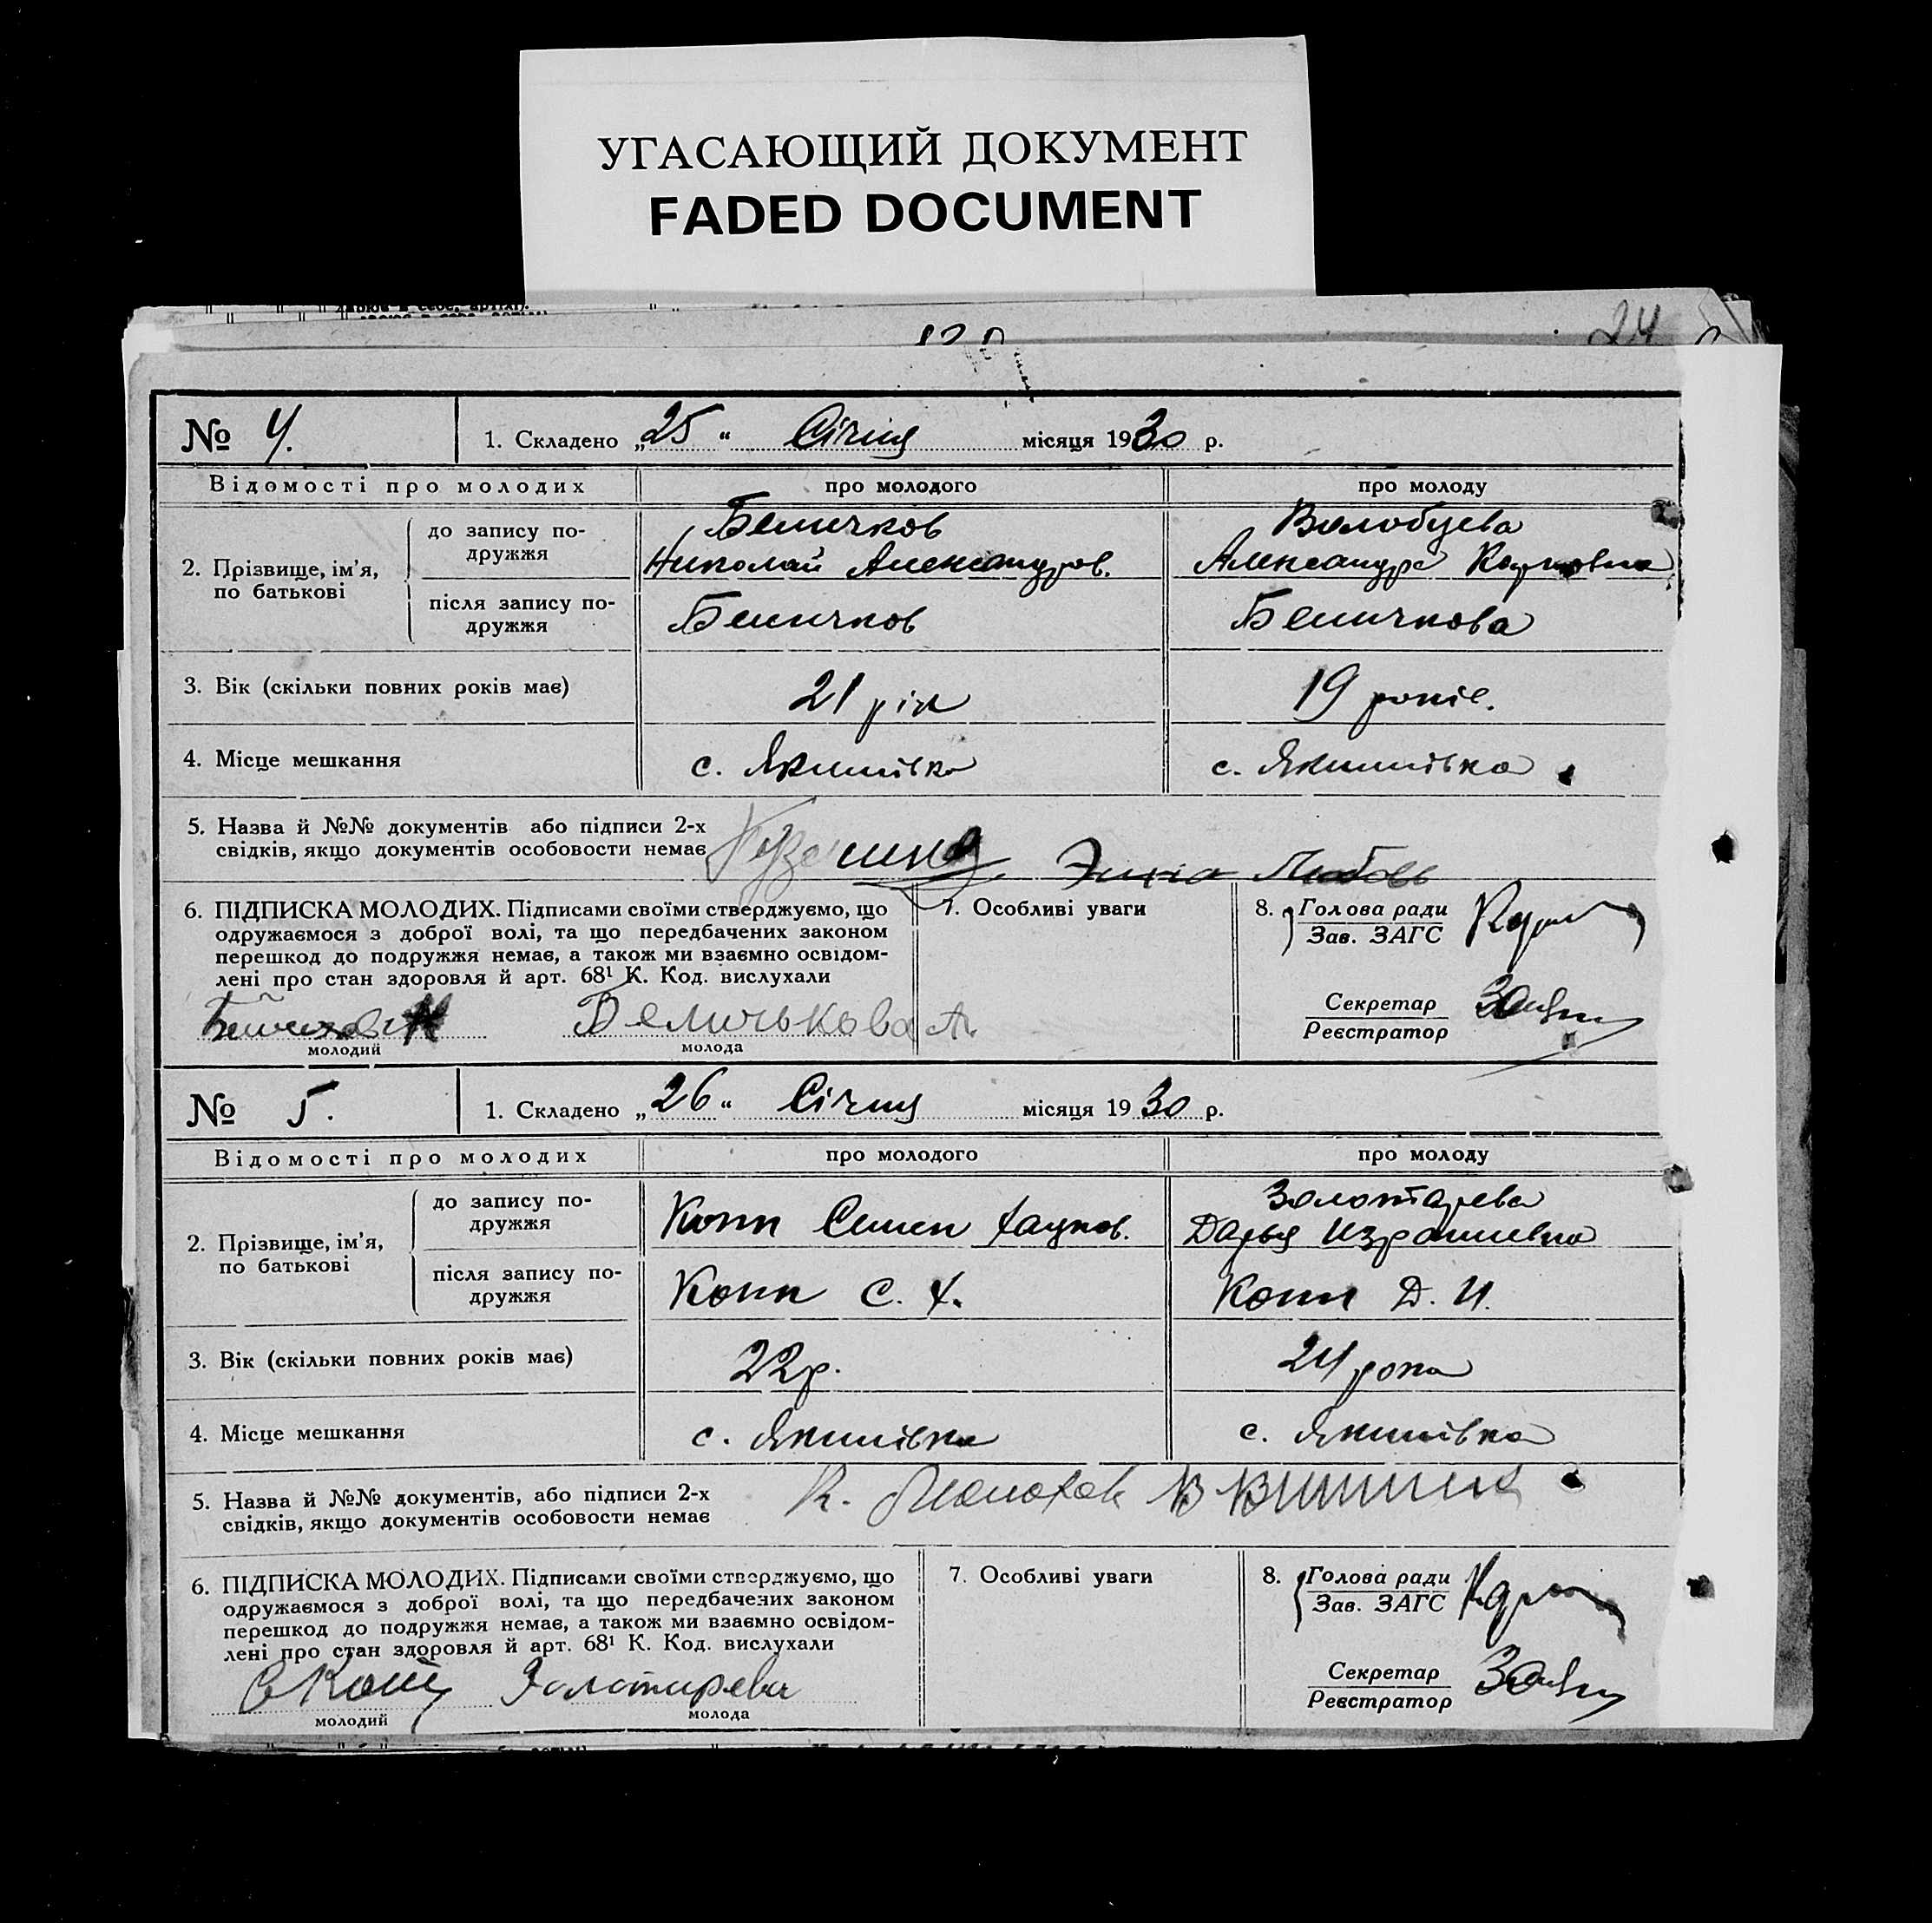 УГАСАЮЩИЙ ДОКУМЕНТ
FADED DOCUMENT
24
№ 4. 1. Складено „25“ Січня місяця 1930 р.
Відомості про молодих про молодого про молоду
2. Прізвище, ім'я, по батькові
до запису подружжя
Беличков
Николай Александров.
Волобуева
Александра Карповна
після запису подружжя
Беличков
Беличкова
3. Вік (скільки повних років має) 21 рік 19 років.
4. Місце мешкання с. Якимівка с. Якимівка
5. Назва й №№ документів або підписи 2-х
свідків, якщо документів особовости немає
Любовь
6. ПІДПИСКА МОЛОДИХ. Підписами своїми стверджуємо, що
одружаємося з доброї волі, та що передбачених законом
перешкод до подружжя немає, а також ми взаємно освідом-
лені про стан здоровля й арт. 68¹ К. Код. вислухали
Беличькова А.
молодий молода
7. Особливі уваги
8. Голова ради
Зав. ЗАГС
Секретар
Реєстратор
№ 5. 1. Складено „26“ Січня місяця 1930 р.
Відомості про молодих про молодого про молоду
2. Прізвище, ім'я, по батькові
до запису подружжя
Копп Семен
Золотарева
Дарья Израилевна
після запису подружжя
Копп С. Х.
Копп Д. И.
3. Вік (скільки повних років має) 22 р. 24 рока
4. Місце мешкання с. Якимівка с. Якимівка
5. Назва й №№ документів, або підписи 2-х
свідків, якщо документів особовости немає
6. ПІДПИСКА МОЛОДИХ. Підписами своїми стверджуємо, що
одружаємося з доброї волі, та що передбачених законом
перешкод до подружжя немає, а також ми взаємно освідом-
лені про стан здоровля й арт. 68¹ К. Код. вислухали
С Копп Золотарева
молодий молода
7. Особливі уваги
8. Голова ради
Зав. ЗАГС
Секретар
Реєстратор